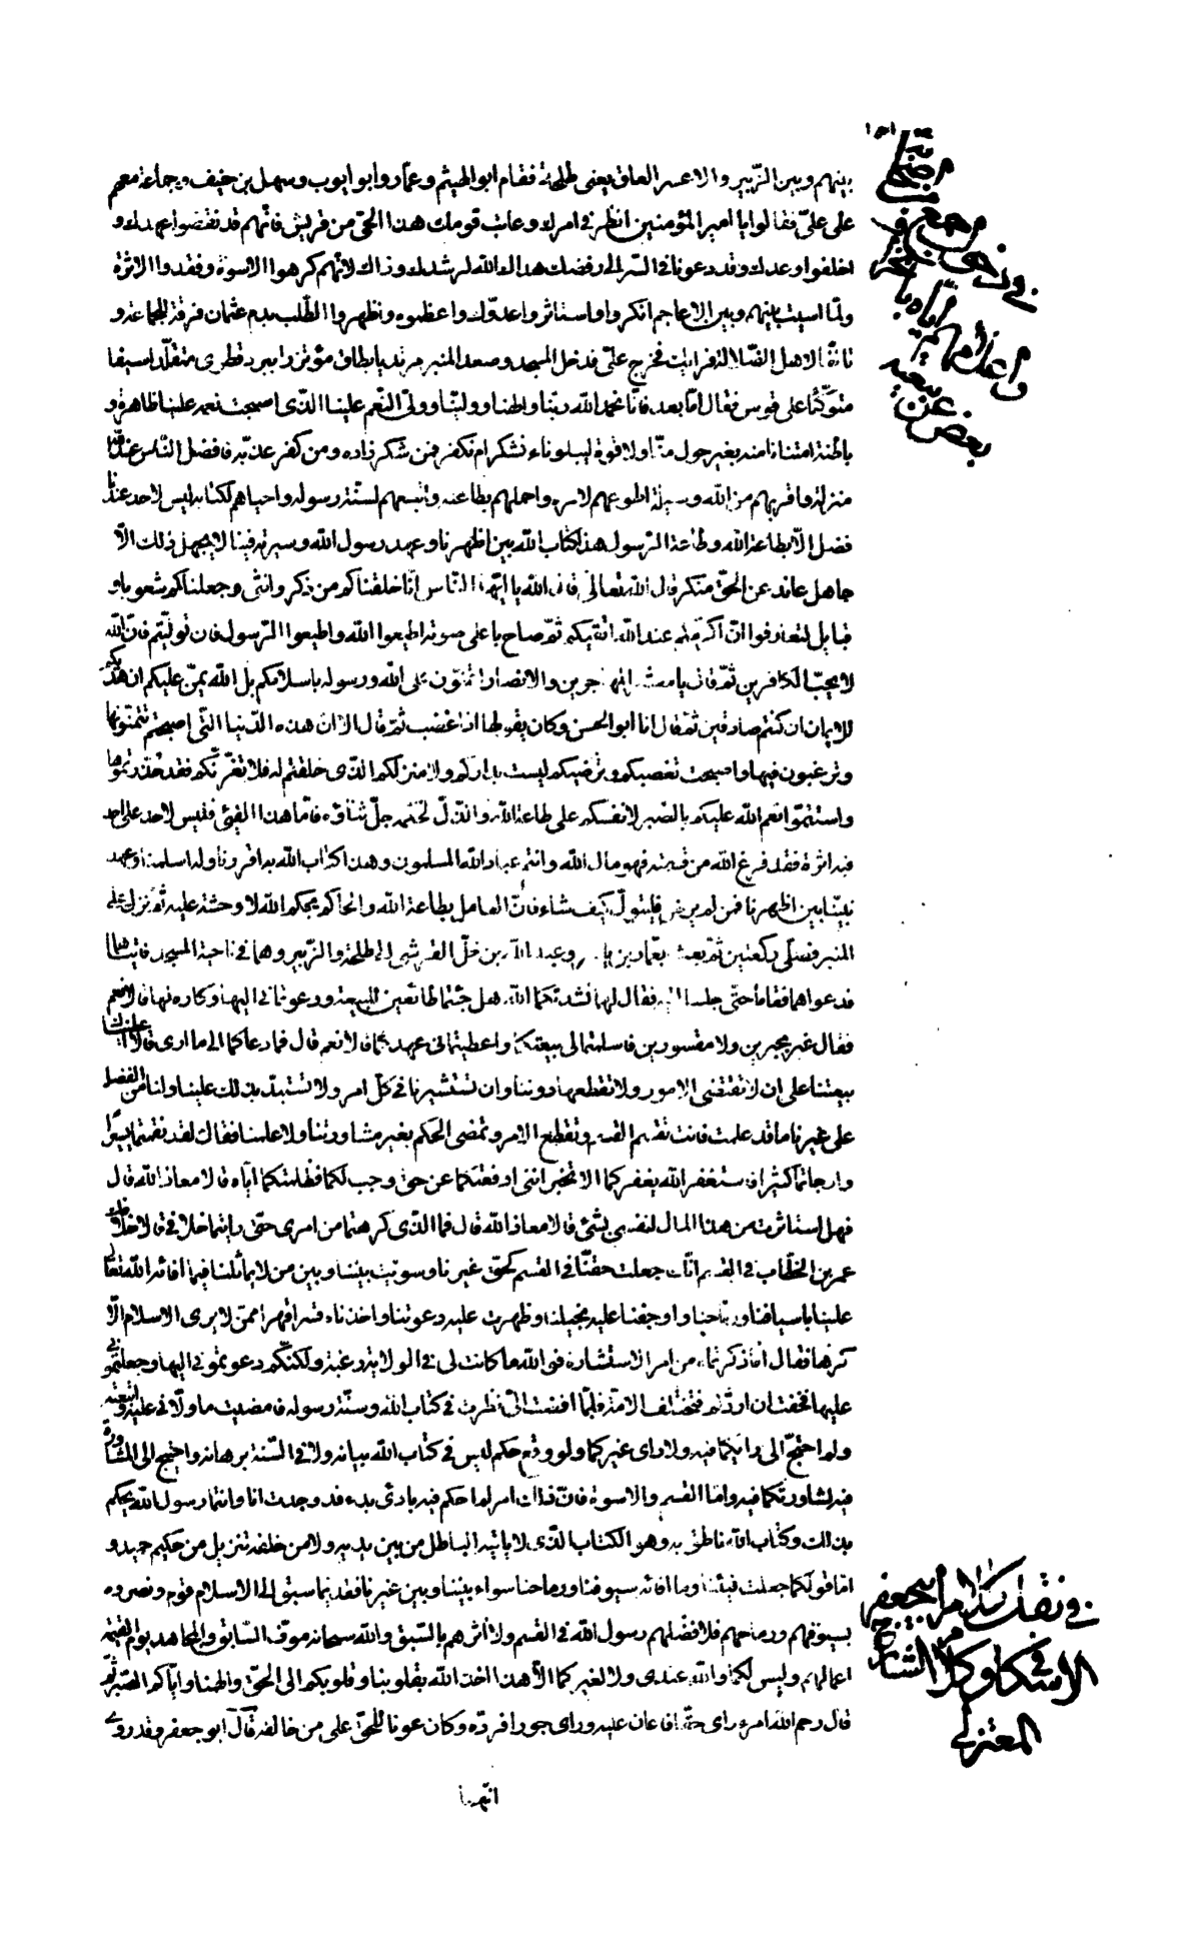 بينهم وبين الزبير والاعسر العاق يعنى طلحة فقام ابو الهيثم وعمار وابو ايوب وسهل بن حنيف وجماعة معهم
على علىّ فقالوا يا امير المؤمنين انظر فى امرك وعاتب قومك هذا الحىّ من قريش فانّهم قد نقضوا عهدك و
اخلفوا وعدك وقد دعونا فى السّر الى رفضك هداك الله لرشدك وذاك لانّهم كرهوا الاسوة وفقدوا الاثرة
ولمّا اسيت بينهم وبين الاعاجم انكروا واستاثروا عدوّك واعظموه واظهروا الطّلب بدم عثمان فرقة للجماعة و
لاهل الضّلالة فرايت فخرج علىّ فدخل المسجد وصعد المنبر مرتديا بطاق مؤتزرا ببرد قطرى متقلّدا سيفا
متوكّئا على قوس فقال امّا بعد فانّا نحمد الله ربّنا والهنا ووليّنا وولىّ النّعم علينا الّذى اصبحت نعمه علينا ظاهرة و
باطنة امتنانا منه بغير حول منّا ولا قوة ليبلونا ءنشكر ام نكفر فمن شكر زاده ومن كفر عذّبه فافضل النّاس عند الله
منزلة واقربهم من الله وسيلة اطوعهم لامره واعملهم بطاعته واتبعهم لسنّة رسوله واحياهم لكتابه ليس لاحد عندنا
فضل الّا بطاعة الله وطاعة الرّسول هذا كتاب الله بين اظهرنا وعهد رسول الله وسيرته فينا لا يجهل ذلك الّا
جاهل عاند عن الحقّ منكر قال الله تعالى يا ايّها النّاس انّا خلقناكم من ذكر وانثى وجعلناكم شعوبا و
قبايل لتعارفوا انّ اكرمكم عند الله اتقيكم ثمّ صاح باعلى صوته اطيعوا الله واطيعوا الرّسول فان تولّيتم فانّ الله
لا يحبّ الكافرين ثمّ قال يا معشر المهاجرين والانصار اتمنّون على الله ورسوله باسلامكم بل الله يمنّ عليكم ان هديكم
للايمان ان كنتم صادقين ثمّ قال انا ابو الحسن وكان يقولها اذا غضب ثمّ قال الا انّ هذه الدّنيا الّتى اصبحتم تتمنّونها
وترغبون فيها واصبحت تغضبكم وترضيكم ليست بداركم ولا منزلكم الّذى خلقتم له فلا تغرّنّكم فقد حذّرتموها
واستتمّوا نعم الله عليكم بالصّبر لانفسكم على طاعة الله والذّلّ لحكمه جلّ ثناؤه فامّا هذا الفيئ فليس لاحد على احد
فيه اثرة فقد فرغ الله من قسمته فهو مال الله وانتم عباد الله المسلمون وهذا كتاب الله به اقررنا وله اسلمنا وعهد
نبيّنا بين اظهرنا فمن لم يرض فليتولّ كيف شاء فانّ العامل بطاعة الله والحاكم بحكم الله لا وحشة عليه ثمّ نزل عن
المنبر فصلّى ركعتين ثمّ بعث بعمّار بن ياسر وعبد الله بن خلّ القرشى الى طلحة والزّبير وهما فى ناحية المسجد فاتياهما
فدعواهما فقاما حتّى جلسا اليه فقال لهما نشدتكما الله هل جئتما طائعين للبيعة ودعوتمانى اليها وانا كاره لها قالا نعم
فقال غير مجبرين ولا مقسورين فاسلمتما لى بيعتكما واعطيتمانى عهدكما قالا نعم قال فما دعاكما الى ما ارى قالا اعطيناك
بيعتنا على ان لا تقتضى الامور ولا تقطعها دوننا وان تستشيرنا فى كلّ امر ولا تستبدّ بذلك علينا ولنا من الفضل
على غيرنا ما قد علمت فانت تقسم القسم وتقطع الامر وتمضى الحكم بغير مشاورتنا ولا علمنا فقال لقد نقمتما يسيرا
وارجاتما كثيرا فاستغفر الله يغفر لكما الا تخبراننى ادفعتكما عن حقّ وجب لكما فظلمتكما ايّاه قالا معاذ الله قال
فهل استاثرت من هذا المال لنفسى بشئ قالا معاذ الله قال فما الّذى كرهتما من امرى حتّى رايتما خلافى قالا خلافك
عمر بن الخطّاب فى القسم انّك جعلت حقّنا فى القسم كحقّ غيرنا وسوّيت بيننا وبين من لا يماثلنا فيما افائه الله تعالى
علينا باسيافنا ورماحنا واوجفنا عليه بخيلنا وظهرت عليه دعوتنا واخذناه قسرا قهرا ممّن لا يرى الاسلام الّا
كرها فقال امّا ما ذكرتماه من امر الاستشارة فو الله ما كانت لى فى الولاية رغبة ولكنّكم دعوتمونى اليها وجعلتمونى
عليها فخفت ان اردّكم فتختلف الامّة فلمّا افضت الىّ نظرت فى كتاب الله وسنّة رسوله فامضيت ما دلّانى عليه واتبعته
ولم احتج الى رايكما فيه ولا راى غيركما ولو وقع حكم ليس فى كتاب الله بيانه ولا فى السّنة برهانه واحتيج الى المشاورة
فيه لشاورتكما فيه وامّا القسم والاسوة فانّ ذلك امر لم احكم فيه بادئ بدء قد وجدت انا وانتما رسول الله يحكم
بذلك وكتاب الله ناطق به وهو الكتاب الّذى لا ياتيه الباطل من بين يديه ولا من خلفه تنزيل من حكيم حميد و
امّا قولكما جعلت فيئنا وما افائته سيوفنا ورماحنا سواء بيننا وبين غيرنا فقديما سبق الى الاسلام قوم ونصروه
بسيوفهم ورماحهم فلا فضّلهم رسول الله فى القسم ولا اثرهم بالسّبق والله سبحانه موفّ السّابق والمجاهد يوم القيمة
اعمالهم وليس لكما والله عندى ولا لغيركما الّا هذا اخذ الله بقلوبنا وقلوبكم الى الحقّ والهمنا وايّاكم الصّبر ثمّ
قال رحم الله امرء راى حقّا فاعان عليه وراى جورا فردّه وكان عونا للحقّ على من خالفه قال ابو جعفر وقد روى
انّهما
فى نقل كلام ابى جعفر
الاسكافى وكلام الشارح
المعتزلى